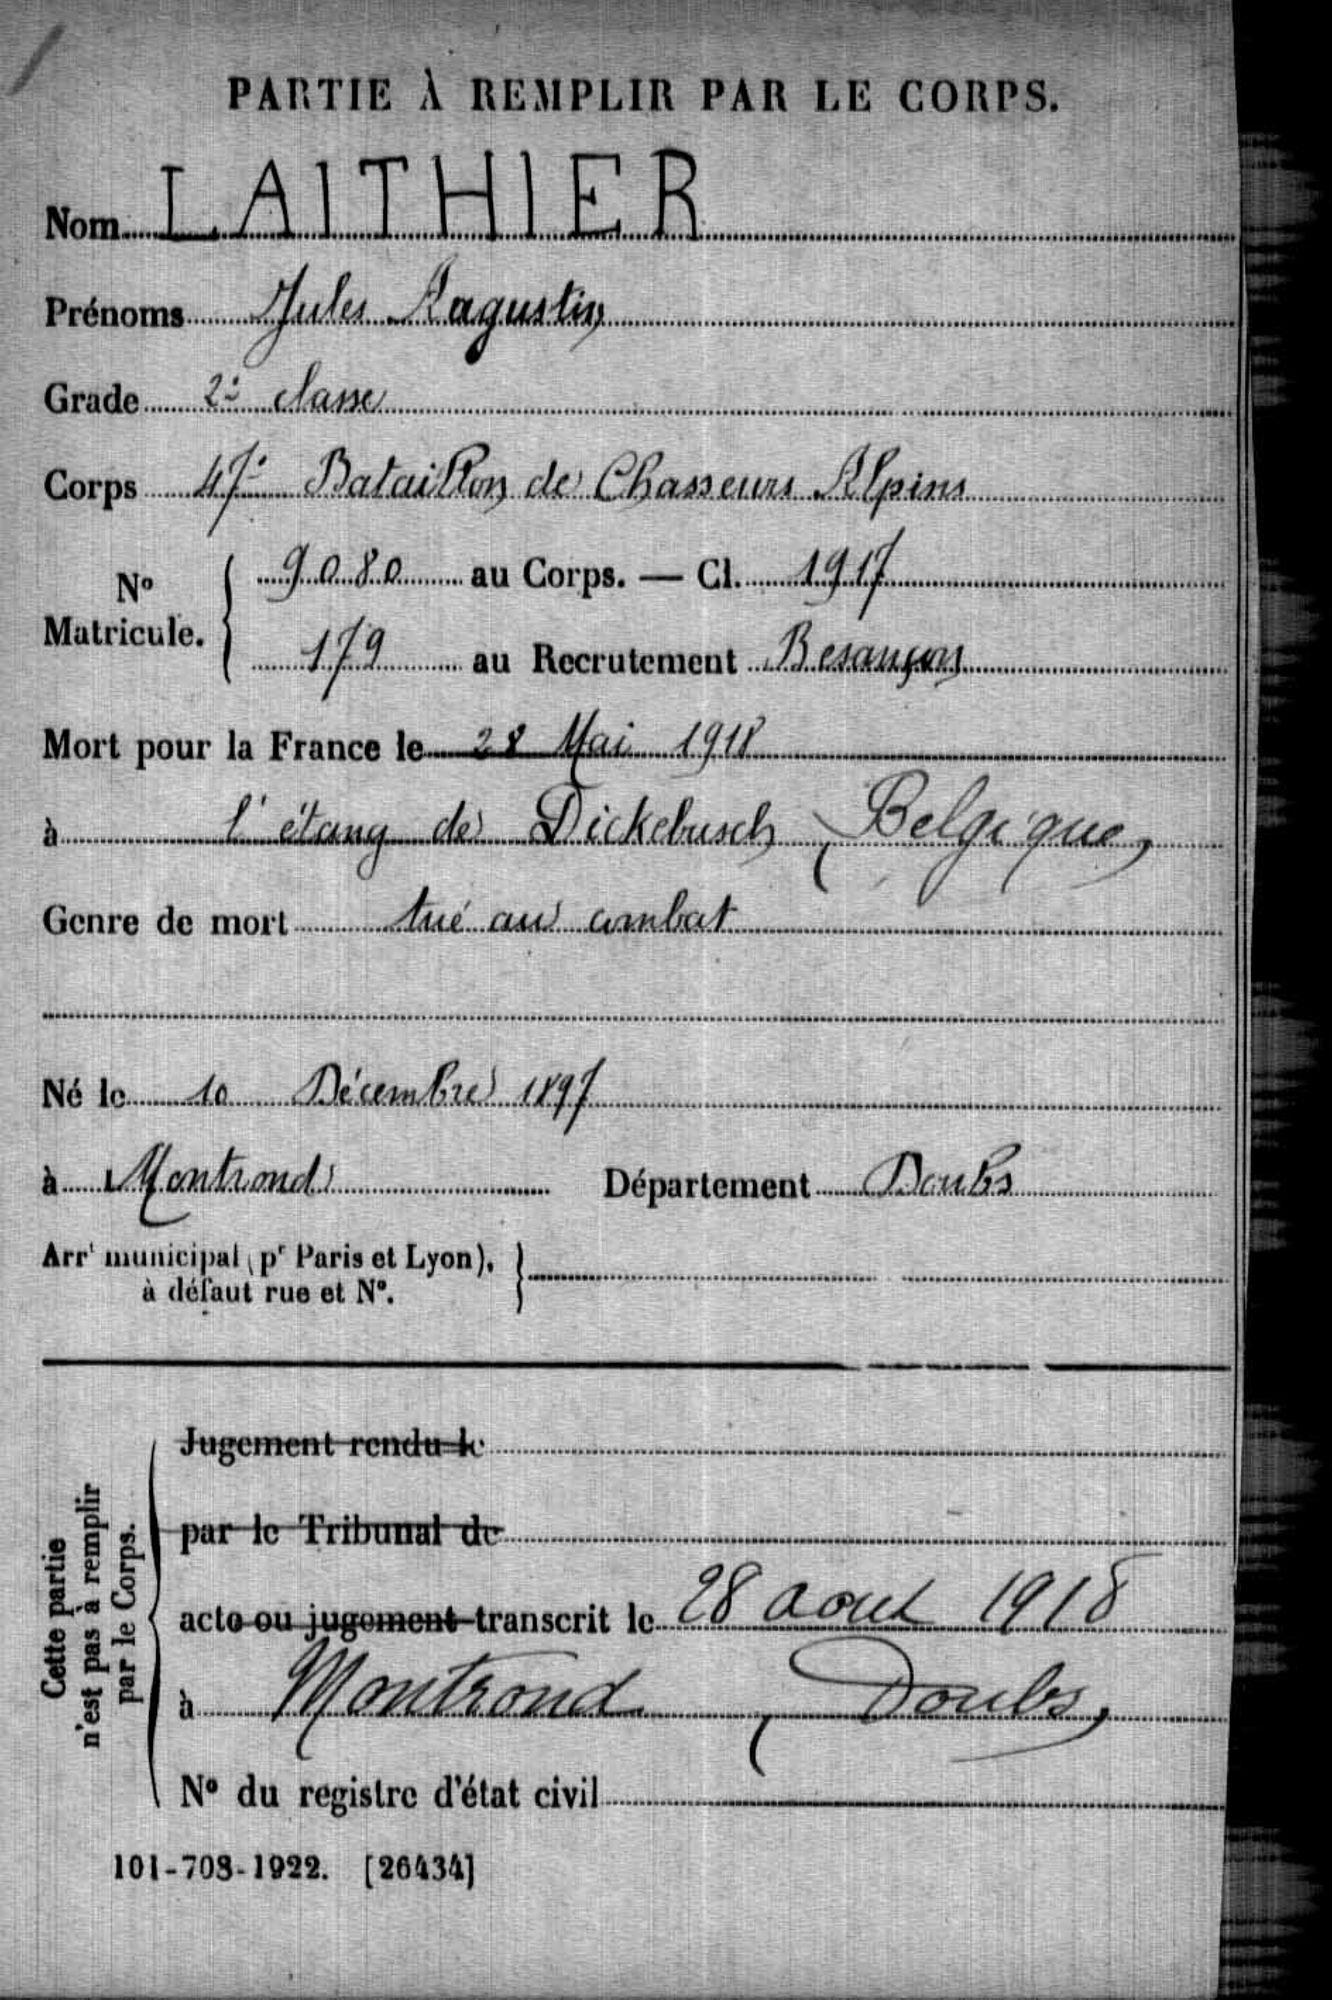 PARTIE À REMPLIR PAR LE CORPS.
Nom LAITHIER
Prénoms Jules Augustin
Grade 2e classe
Corps 47e Bataillon de Chasseurs Alpins
No Matricule. { 9080 au Corps. — Cl. 1917
179 au Recrutement Besançon
Mort pour la France le 28 Mai 1918
à l'étang de Dickebusch (Belgique)
Genre de mort tué au combat
Né le 10 Décembre 1897
à Montrond Département Doubs
Arrt municipal (pr Paris et Lyon), à défaut rue et No. }
Cette partie n'est pas à remplir par le Corps.
Jugement rendu le
par le Tribunal de
acte ou jugement transcrit le 28 aout 1918
à Montrond (Doubs)
No du registre d'état civil
101-708-1922. [26434]